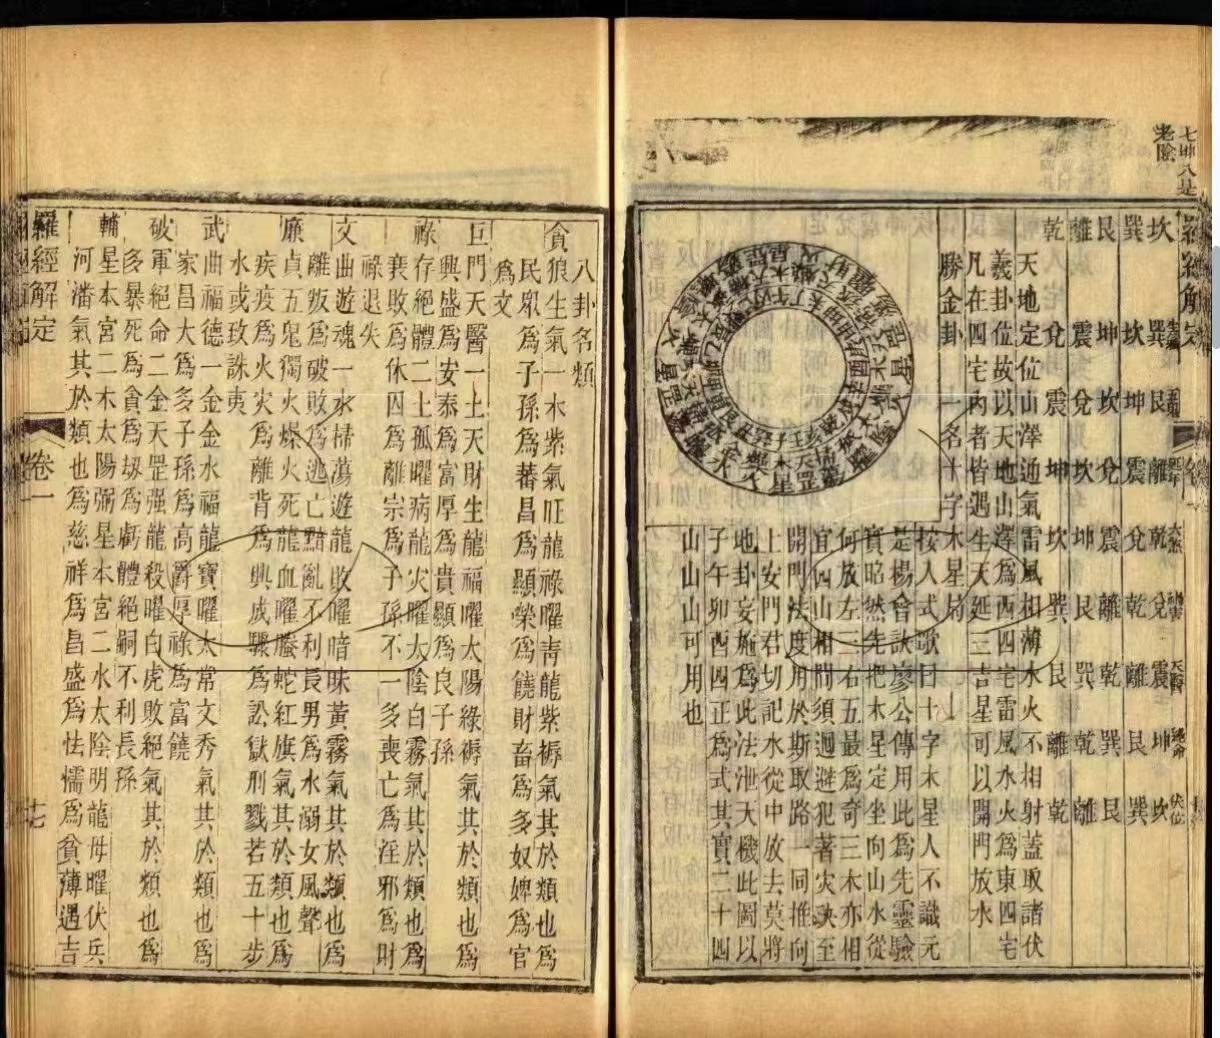 七坤八是
老陰
羅經解定
坎 巽 艮 離 乾 兌 震 坤 坎
巽 坎 坤 震 兌 乾 離 艮 巽
艮 坤 坎 兌 震 離 乾 巽 艮
離 震 兌 坎 坤 艮 巽 乾 離
乾 兌 震 坤 坎 巽 艮 離 乾
天地定位山澤通氣雷風相薄水火不相射蓋取諸伏
義卦位故以天地山澤為西四宅雷風水火為東四宅
凡在四宅內者皆遇生天延三吉星可以開門放水
勝金卦一名十字木星局
按人式歌曰十字木星人不識元
是楊會訣廖公傳用此為先靈驗
實昭然先把木星定坐向山水從
何放左三右五最為奇三木亦相
宜四山相間須迴避犯著災殃至
開門法度用於斯取路一同推向
上安門君切記水從中放去莫將
地卦妄施為此法泄天機此圖以
子午卯酉四正為式其實二十四
山山山可用也
八卦名類
貪狼生氣一木紫氣旺龍祿曜青龍紫褥氣其於類也為
民眾為子孫為蕃昌為顯榮為饒財畜為多奴婢為官
為文
巨門天醫一土天財生龍福曜太陽綠褥氣其於類也為
興盛為安泰為富厚為貴顯為良子孫
祿存絕體二土孤曜病龍火曜太陰白霧氣其於類也為
衰敗為休囚為離宗為子孫不一多喪亡為淫邪為財
祿退失
文曲遊魂一水掃蕩遊龍敗曜暗昧黃霧氣其於類也為
離叛為破敗為逃亡黠亂不利長男為水溺女風聲
廉貞五鬼獨火燥火死龍血曜螣蛇紅旗氣其於類也為
疾疫為火災為離背為興成驟為訟獄刑戮若五十步
水或致誅夷
武曲福德一金金水福龍寶曜太常文秀氣其於類也為
家昌大為多子孫為高爵厚祿為富饒
破軍絕命二金天罡强龍殺曜白虎敗絕氣其於類也為
多暴死為貪為刼為虧體絕嗣不利長孫
輔星本宮二木太陽弼星本宮二水太陰明龍母曜伏兵
河潘氣其於類也為慈祥為昌盛為怯懦為貧薄遇吉
羅經解定 卷一 十七